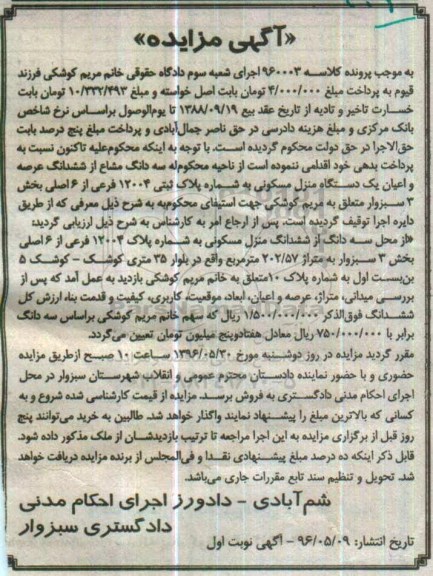 «آگهی مزایده»
به موجب پرونده کلاسه ۹۶۰۰۰۳ اجرای شعبه سوم دادگاه حقوقی خانم مریم کوشکی فرزند
قیوم به پرداخت مبلغ ۴/۰۰۰/۰۰۰ تومان بابت اصل خواسته و مبلغ ۱۰/۳۳۲/۴۹۳ تومان بابت
خسارت تاخیر و تادیه از تاریخ عقد بیع ۱۳۸۸/۰۹/۱۹ تا یوم‌الوصول براساس نرخ شاخص
بانک مرکزی و مبلغ هزینه دادرسی در حق ناصر جمال‌آبادی و پرداخت مبلغ پنج درصد بابت
حق‌الاجرا در حق دولت محکوم گردیده است. با توجه به اینکه محکوم‌علیه تاکنون نسبت به
پرداخت بدهی خود اقدامی ننموده است از ناحیه محکوم‌له سه دانگ مشاع از ششدانگ عرصه
و اعیان یک دستگاه منزل مسکونی به شماره پلاک ثبتی ۱۲۰۰۴ فرعی از ۶ اصلی بخش
۳ سبزوار متعلق به مریم کوشکی جهت استیفای محکوم‌به به شرح ذیل معرفی که از طریق
دایره اجرا توقیف گردیده است. پس از ارجاع امر به کارشناس به شرح ذیل ارزیابی گردید:
«از محل سه دانگ از ششدانگ منزل مسکونی به شماره پلاک ۱۲۰۰۴ فرعی از ۶ اصلی
بخش ۳ سبزوار به متراژ ۲۰۲/۵۷ مترمربع واقع در بلوار ۳۵ متری کوشک - کوشک ۵
بن‌بست اول به شماره پلاک ۱۰متعلق به خانم مریم کوشکی بازدید به عمل آمد که پس از
بررسی میدانی، متراژ، عرصه و اعیان، ابعاد، موقعیت، کاربری، کیفیت و قدمت بنا، ارزش کل
ششدانگ فوق‌الذکر ۱/۵۰۰/۰۰۰/۰۰۰ ریال که سهم خانم مریم کوشکی براساس سه دانگ
برابر با ۷۵۰/۰۰۰/۰۰۰ ریال معادل هفتادوپنج میلیون تومان تعیین می‌گردد.
مقرر گردید مزایده در روز دوشنبه مورخ ۱۳۹۶/۰۵/۳۰ ساعت ۱۰ صبح ازطریق مزایده
حضوری و با حضور نماینده دادستان محترم عمومی و انقلاب شهرستان سبزوار در محل
اجرای احکام مدنی دادگستری به فروش برسد. مزایده از قیمت کارشناسی شده شروع و به
کسانی که بالاترین مبلغ را پیشنهاد نمایند واگذار خواهد شد. طالبین به خرید می‌توانند پنج
روز قبل از برگزاری مزایده به این اجرا مراجعه تا ترتیب بازدیدشان از ملک مذکور داده شود.
قابل ذکر اینکه ده درصد مبلغ پیشنهادی نقدا و فی‌المجلس از برنده مزایده دریافت خواهد
شد. تحویل و تنظیم سند تابع مقررات جاری می‌باشد.
شم‌آبادی - دادورز اجرای احکام مدنی
دادگستری سبزوار
تاریخ انتشار: ۹۶/۰۵/۰۹ - آگهی نوبت اول